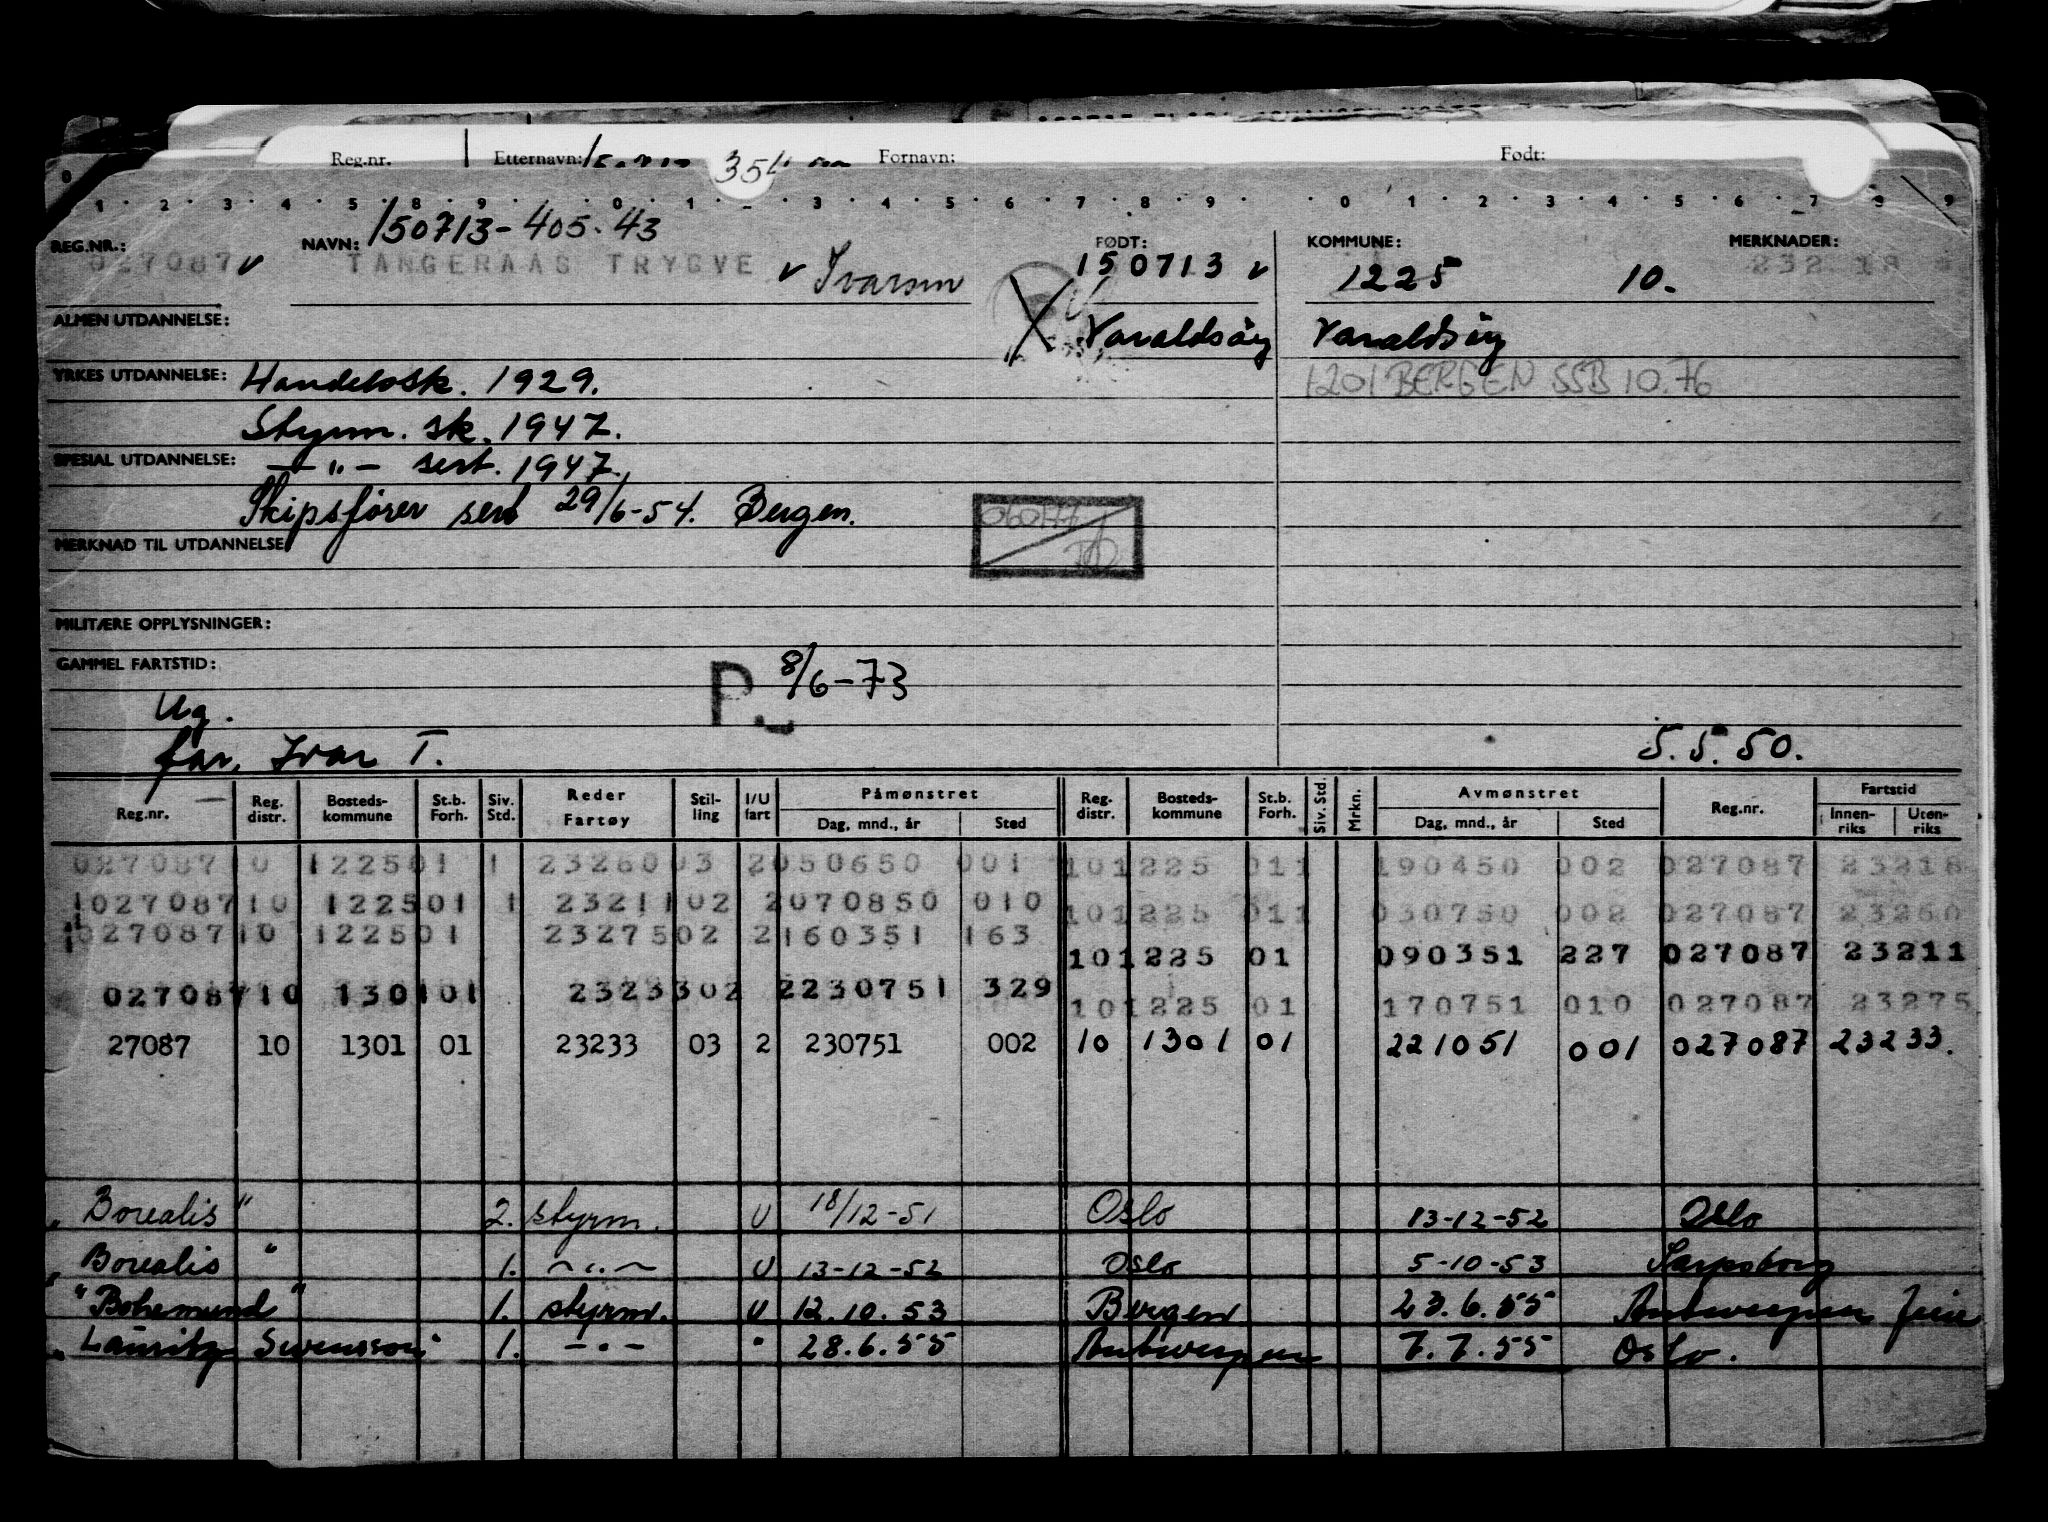 Reg.nr. Etternavn: Fornavn: Født:
1 2 3 4 5 8 9 0 1 3 4 5 6 7 8 9 0 1 2 3 4 5 6 7 8 9
REG.NR.: NAVN: 150713-405.43 FØDT: KOMMUNE: MERKNADER:
027087 TANGERAAS TRYGVE Ivarson 150713 1225 10. 232 18
ALMEN UTDANNELSE: Varaldsöy Varaldsöy
YRKES UTDANNELSE: Handelssk. 1929. 1201 BERGEN SSB 10.76
Styrm. sk. 1947.
SPESIAL UTDANNELSE: — " — sert. 1947.
Skipsfører sert 29/6-54. Bergen.
MERKNAD TIL UTDANNELSE:
MILITÆRE OPPLYSNINGER:
GAMMEL FARTSTID: P. 8/6-73
Ug.
far, Ivar T. 5.5.50.
Reg.nr. Reg. distr. Bosteds-kommune St.b. Forh. Siv. Std. Reder Fartøy Stil-ling I/U fart Påmønstret Dag, mnd., år Sted Reg. distr. Bosteds-kommune St.b. Forh. Siv. Std. Mrkn. Avmønstret Dag, mnd., år Sted Reg.nr. Fartstid Innen-riks Uten-riks
027087 10 1225 01 1 23260 03 2 050650 001 10 1225 01 1 190450 002 027087 23218
027087 10 1225 01 1 23211 02 2 070850 010 10 1225 01 1 030750 002 027087 23260
027087 10 1225 01 23275 02 2 160351 163 10 1225 01 090351 227 027087 23211
027087 10 1301 01 23233 02 2 230751 329 10 1225 01 170751 010 027087 23275
27087 10 1301 01 23233 03 2 230751 002 10 1301 01 221051 001 027087 23233.
"Borealis" 2. styrm. U 18/12-51 Oslo 13-12-52 Oslo
"Borealis" 1. — " — U 13-12-52 Oslo 5-10-53 Sarpsborg
"Bohemund" 1. styrm. U 12.10.53 Bergen 23.6.55 Antwerpen
"Lauritz Swensson" 1. — " — " 28.6.55 Antwerpen 7.7.55 Oslo.